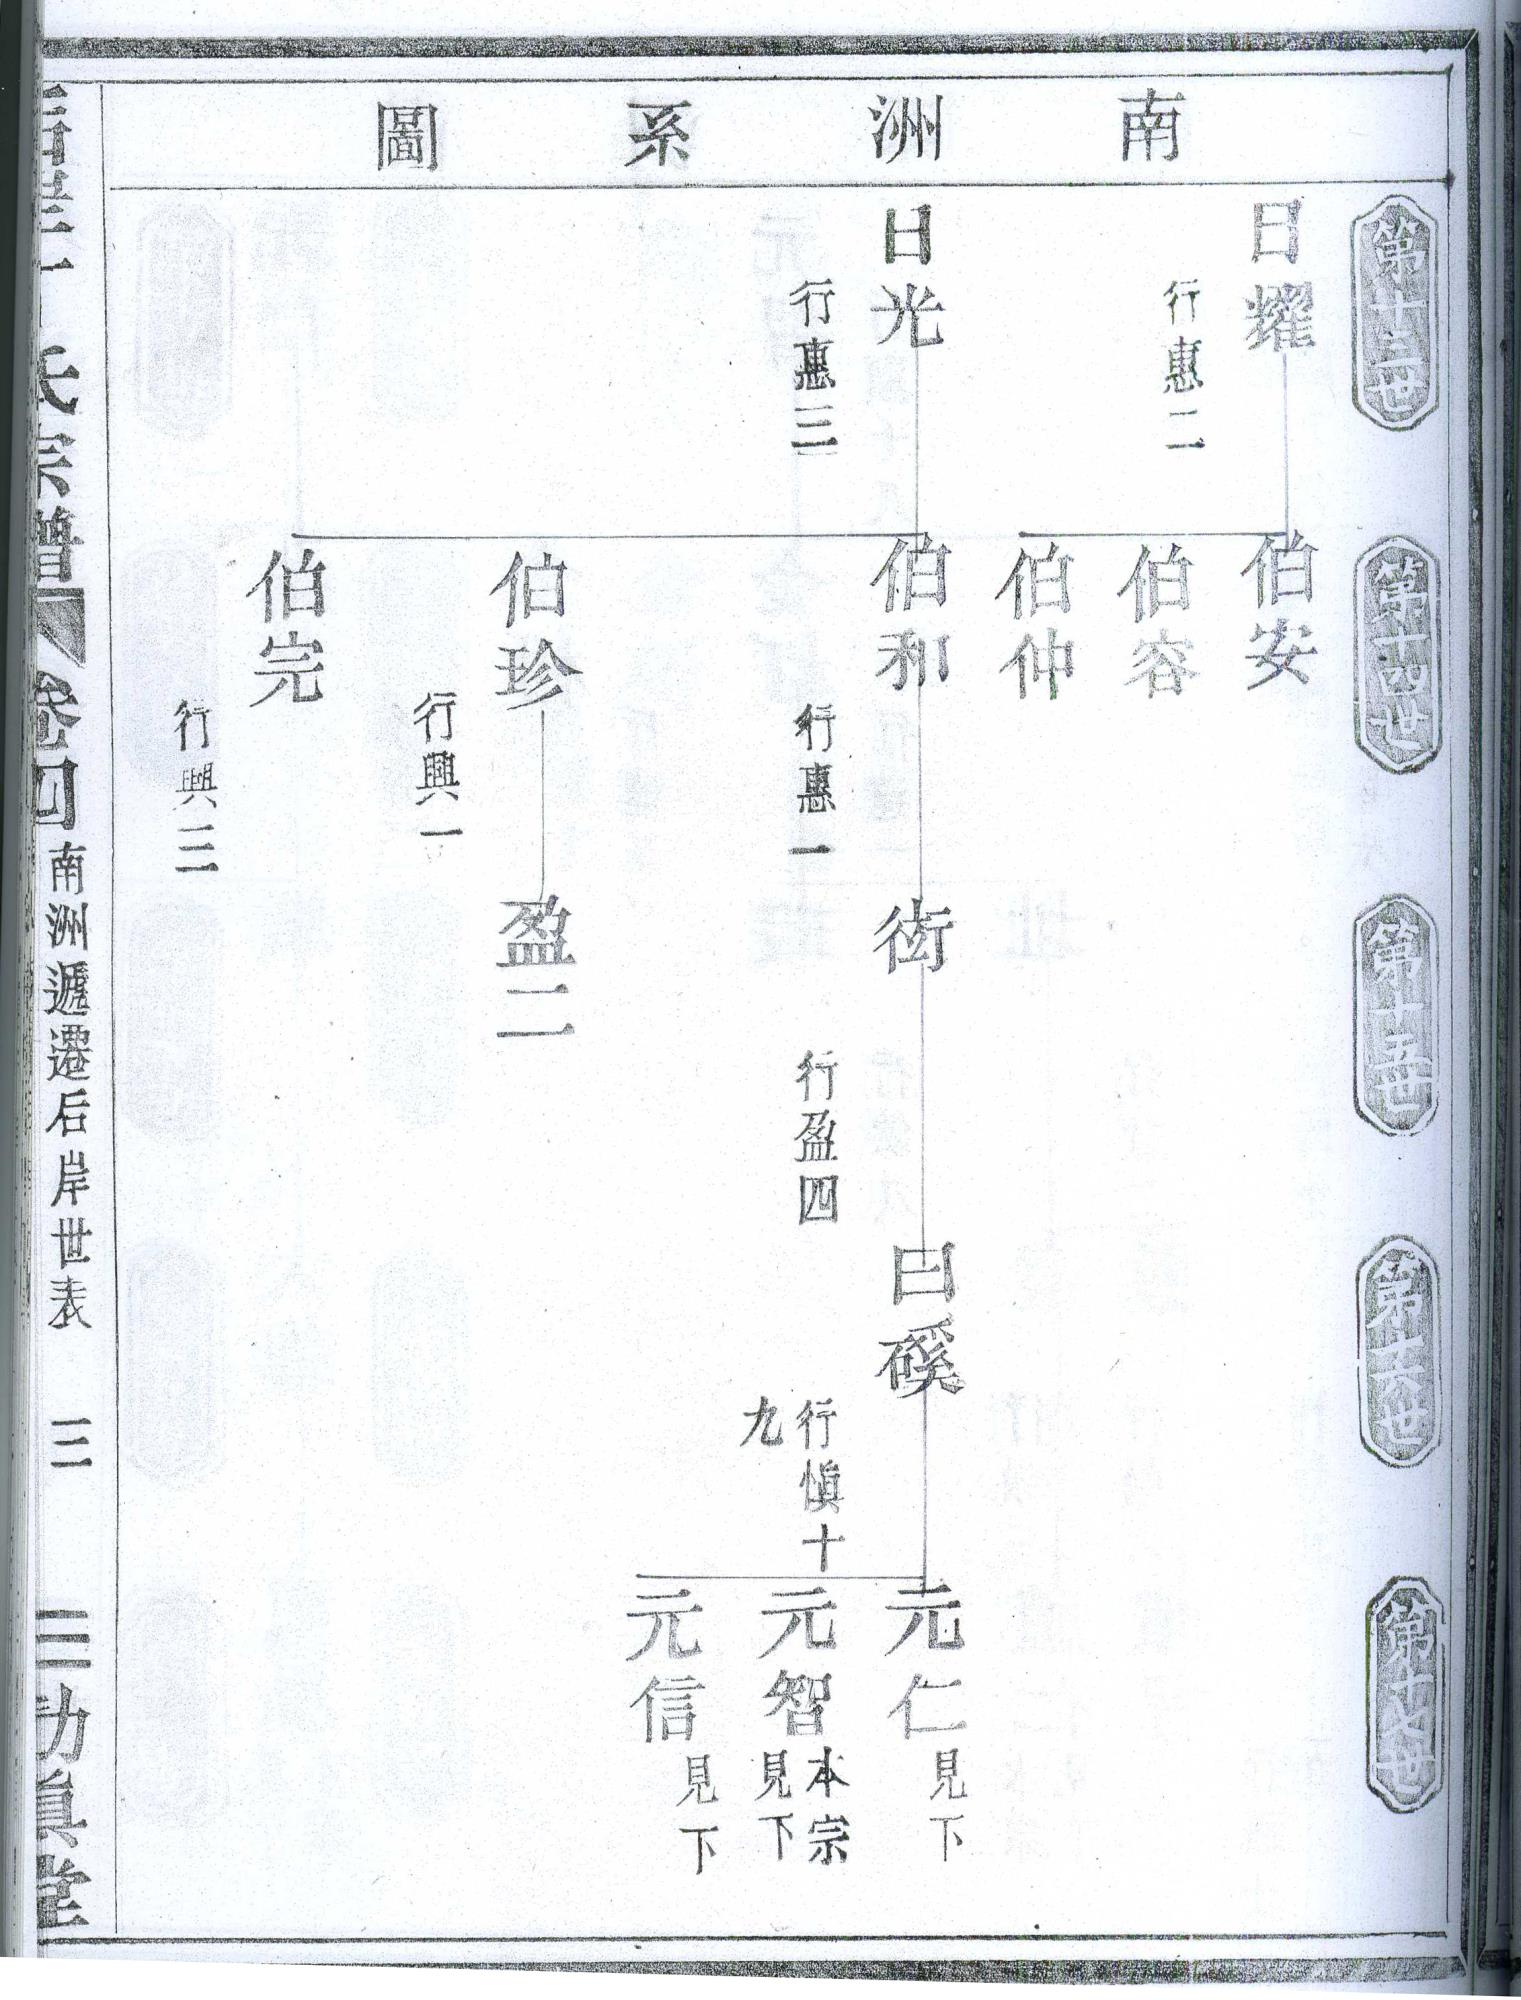 南洲系圖
第十三世
日耀
行惠二
日光
行惠三
第十四世
伯安
伯容
伯仲
伯和
行惠一
伯珍
行興一
伯完
行興三
第十五世
衒
行盈四
盈二
第十六世
曰磎
行愼十
九
第十七世
元仁
見下
元智
本宗
見下
元信
見下
氏宗譜
卷四
南洲遞遷后岸世表
三
三
眞堂